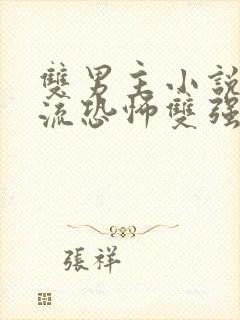 雙男主小説
流恐怖雙强
張祥